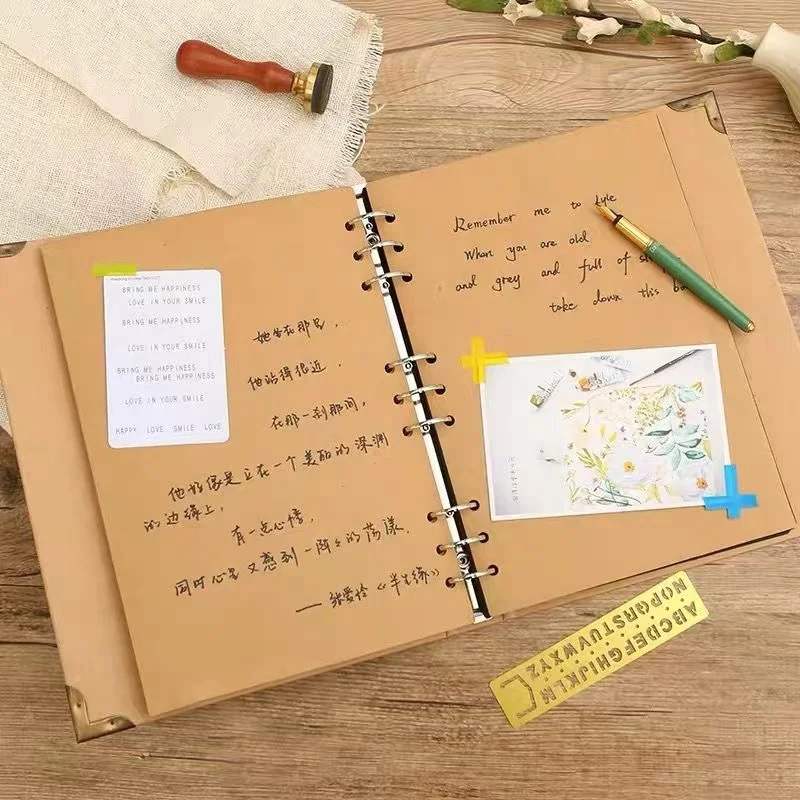 BRING ME HAPPINESS
LOVE IN YOUR SMILE
BRING ME HAPPINESS
LOVE IN YOUR SMILE
BRING ME HAPPINESS
BRING ME HAPPINESS
LOVE IN YOUR SMILE
HAPPY LOVE SMILE LOVE
她坐在那里，
他站得很近．
在那一刹那间，
他好像是立在一个美丽的深渊
的边缘上，
有一点心悸，
同时心里又感到一阵阵的荡漾．
——张爱玲《半生缘》
Remember me to
When you are old
and grey and full of
take down this
ABCDEFGHIJKLM
NOPQRSTUVWXYZ